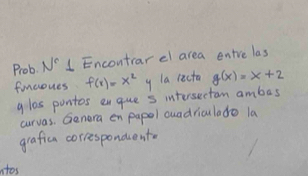 Prob. N° 1 Encontrar el area entre las
funciones f(x) = x² y la recta g(x) = x + 2
y los puntos en que s intersectan ambas
curvas. Genera en papel cuadriculado la
grafica correspondiente
ntos